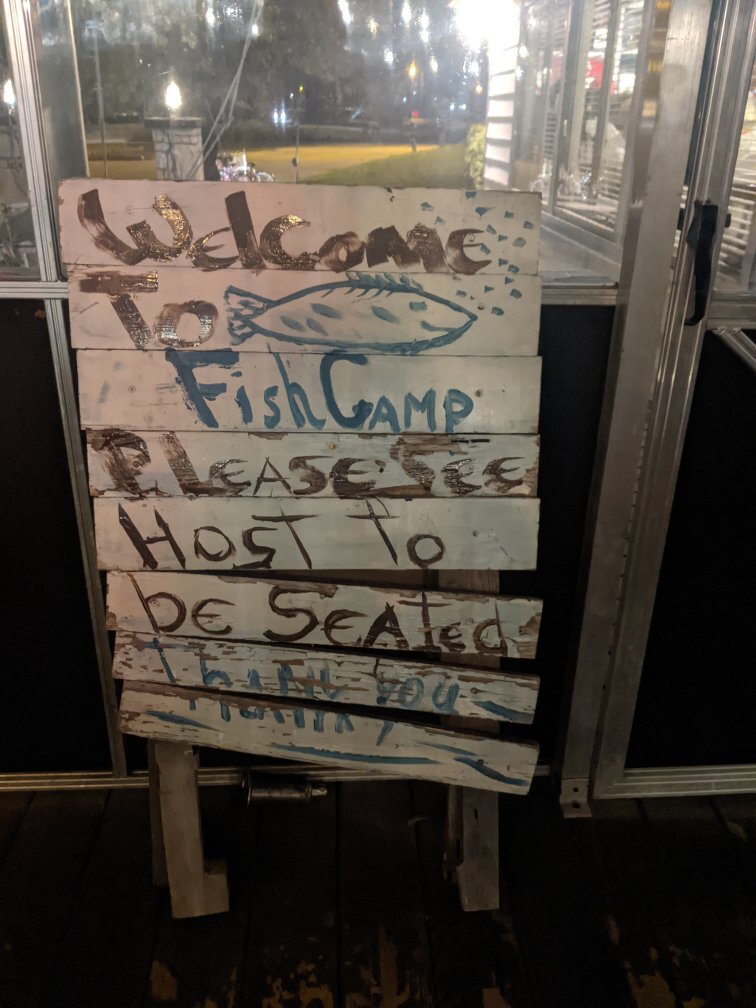 Welcome
To
Fish Camp
Please See
Host To
be Seated
Thank you